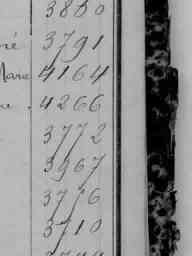 3830
né 3791
Marie 4164
4266
3772
3967
3776
3710